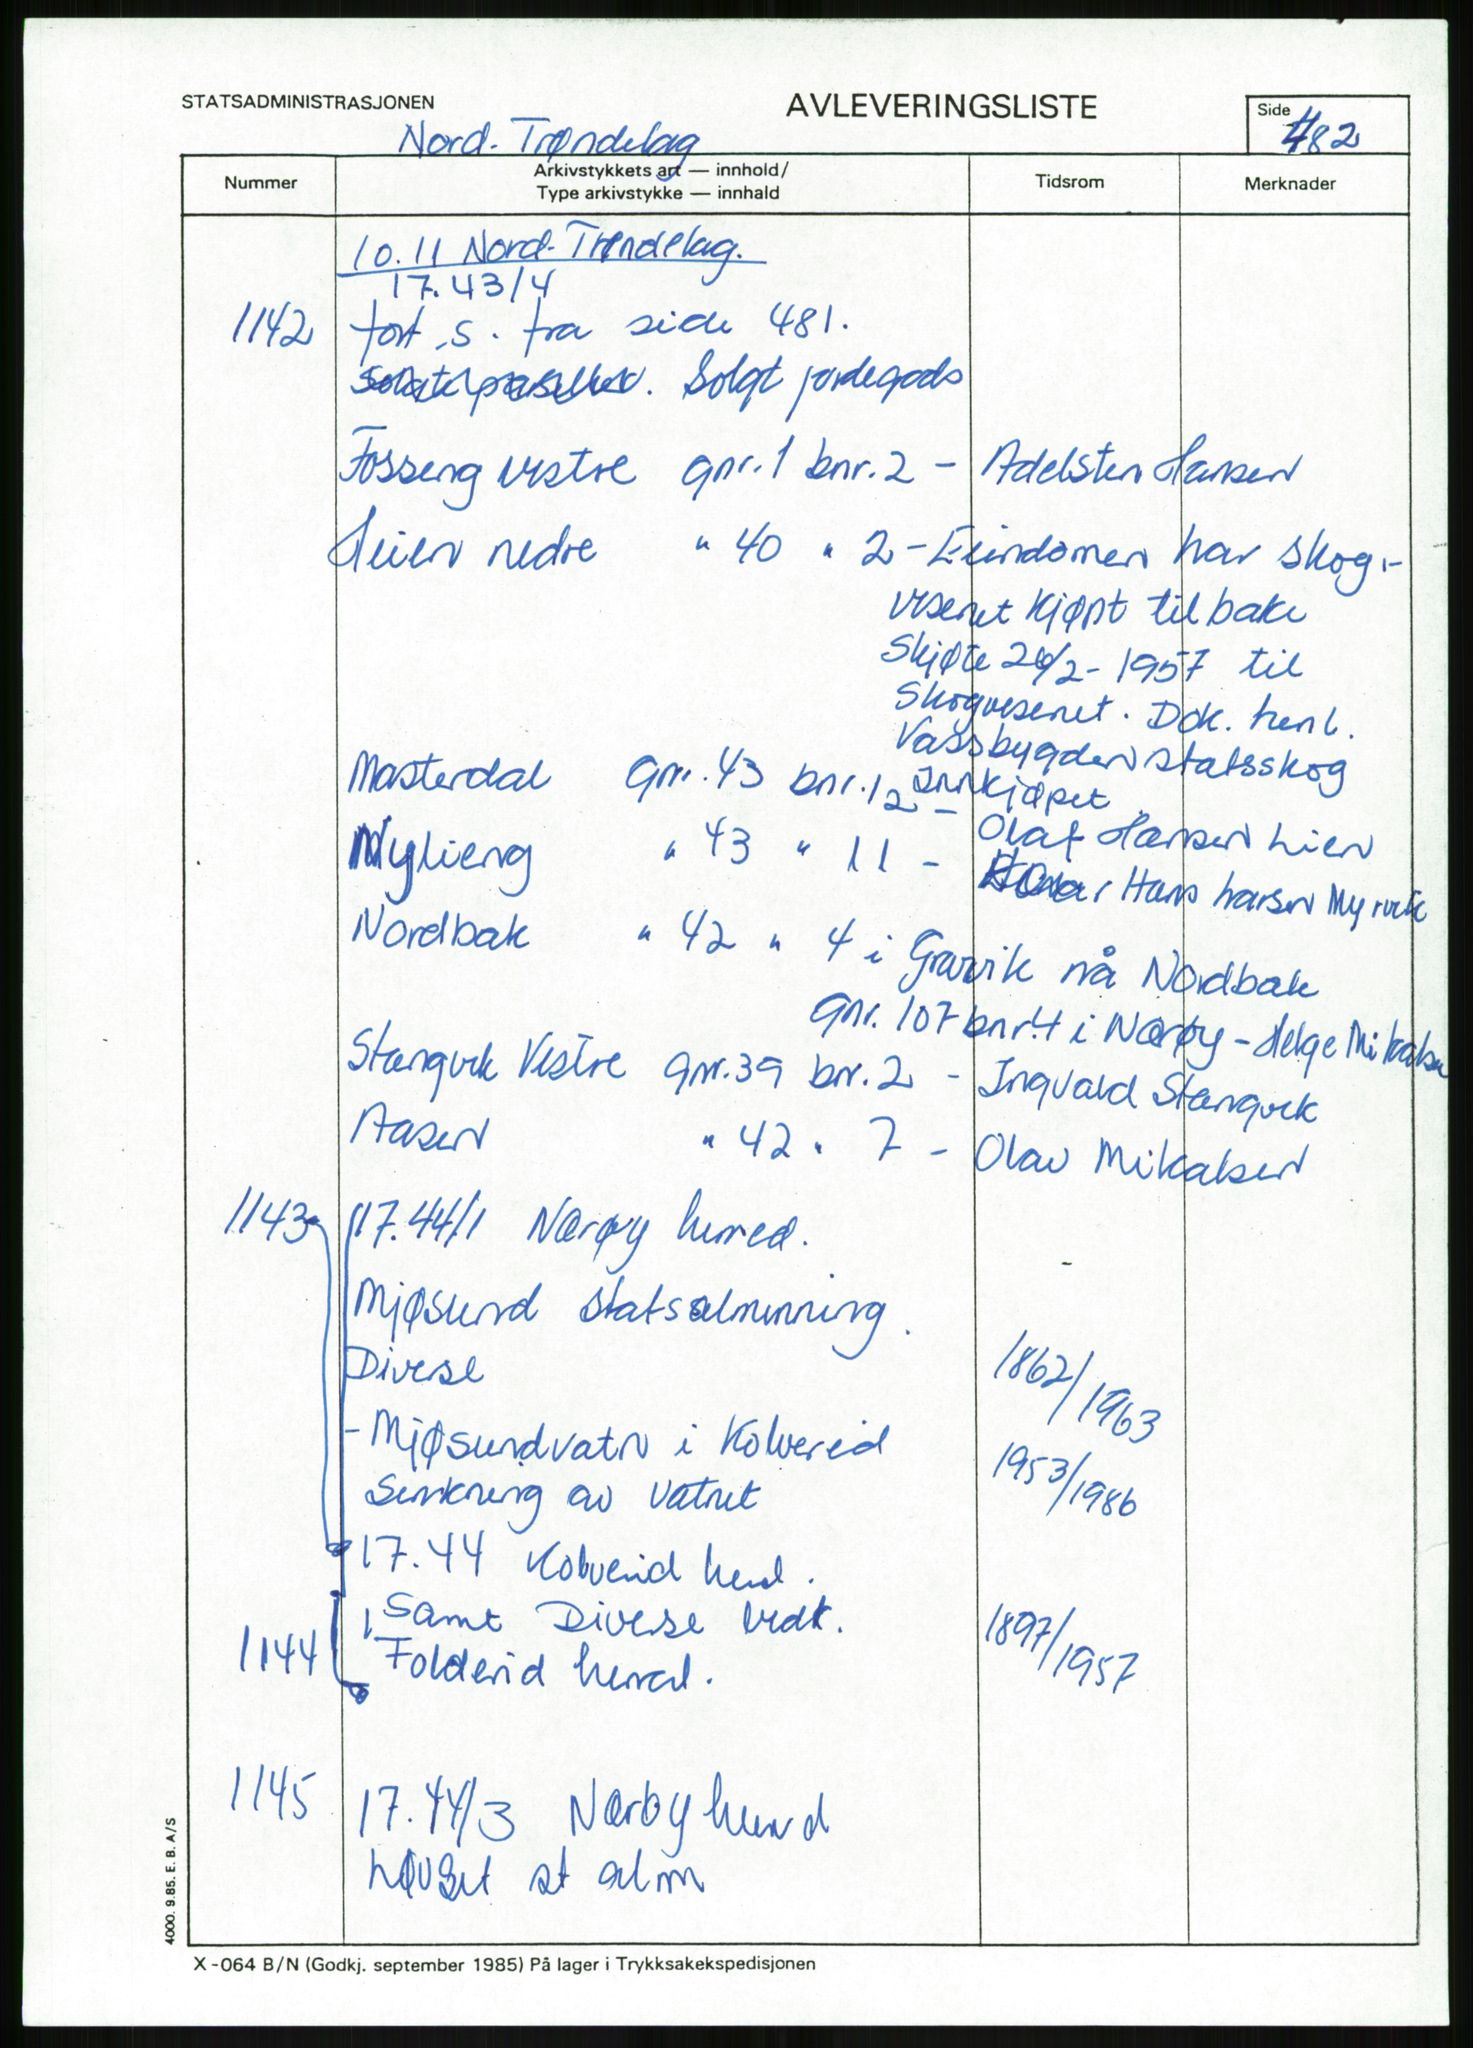 STATSADMINISTRASJONEN
AVLEVERINGSLISTE
Side 482
Nord-Trøndelag
Nummer
Arkivstykkets art — innhold/
Type arkivstykke — innhald
Tidsrom
Merknader
10.11 Nord-Trøndelag.
17.43/4
1142 fort.s. fra side 481.
Solgt jordegods
Fosseng vestre gnr. 1 bnr. 2 - Adelsten Hansen
Heien nedre " 40 " 2 - Eiendomen har skog-
vesenet kjøpt tilbake
Skjøte 26/2-1957 til
Skogvesenet. Dok. henl.
Vassbygden statsskog
Innkjøpet
Masterdal gnr. 43 bnr. 12 - Olaf Hansen Lien
Nylieng " 43 " 11 - Hans Hansen Myrvik
Nordbak " 42 " 4 i Gravvik nå Nordbak
gnr. 107 bnr. 4 i Nærøy - Helge Mikalsen
Stangvik Vestre gnr. 39 bnr. 2 - Ingvald Stangvik
Aasen " 42 " 7 - Olav Mikalsen
1143 17.44/1 Nærøy herred.
Mjøsund statsalmenning.
Diverse 1862/1963
- Mjøsundvatn i Kolvereid
Senkning av vatnet 1953/1986
17.44 Kolvereid herred.
Samt Diverse vedk.
1144 Foldereid herred. 1897/1957
1145 17.44/3 Nærøy herred
st alm
4000. 9.85. E. B. A/S
X-064 B/N (Godkj. september 1985) På lager i Trykksakekspedisjonen